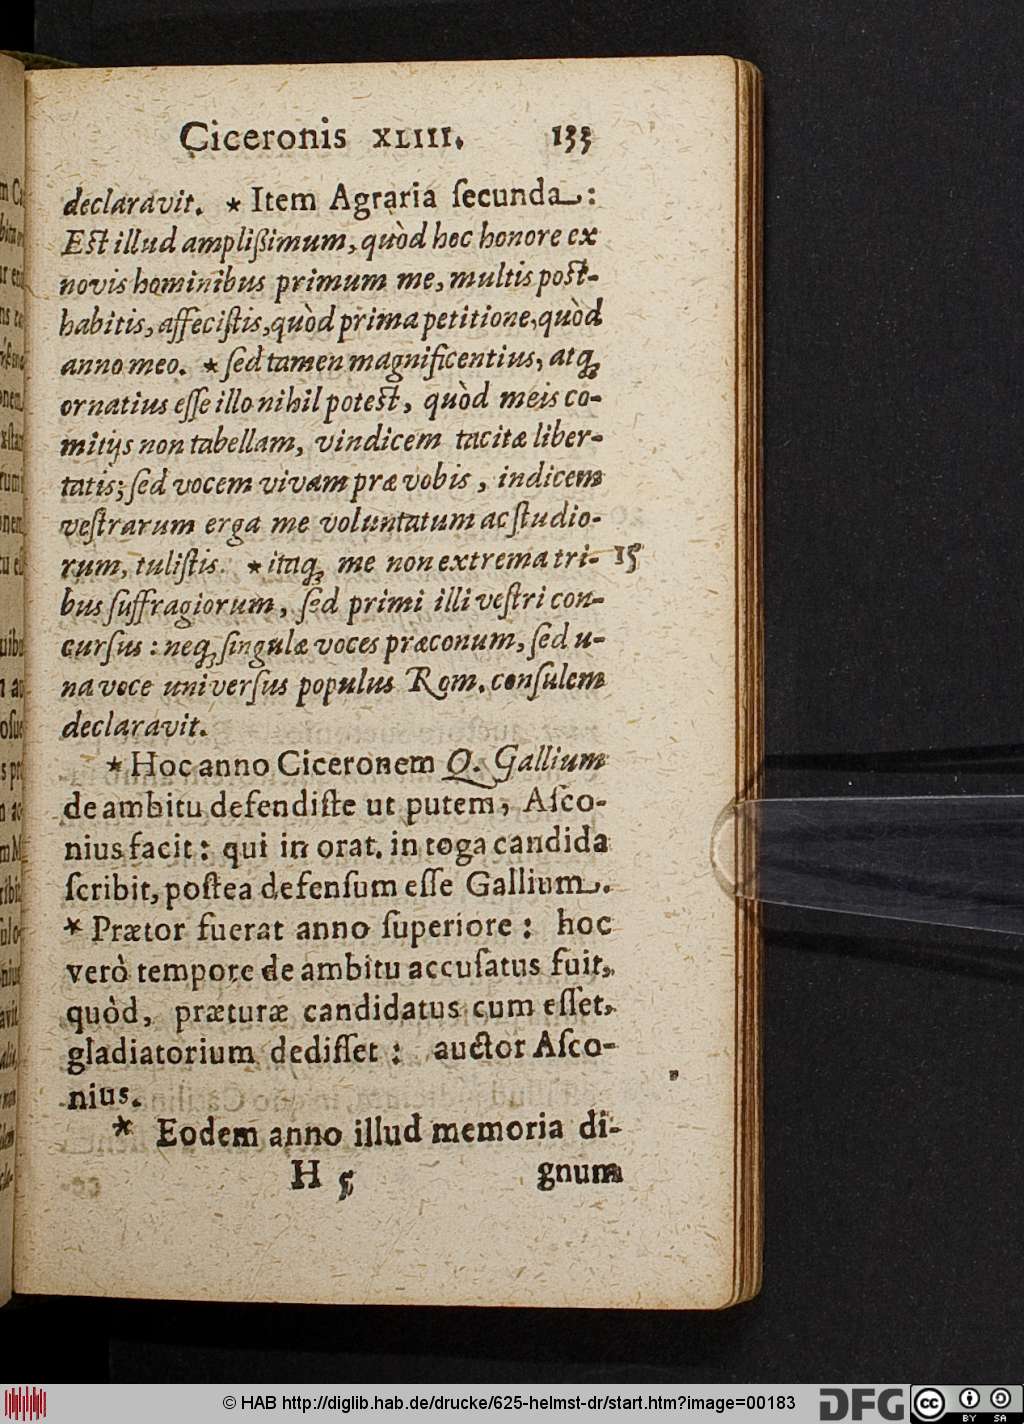 Ciceronis XLIII. 133
declaravit. * Item Agraria ſecunda:
Eſt illud ampliſsimum, quòd hoc honore ex
novis hominibus primum me, multis poſt-
habitis, affeciſtis, quòd prima petitione, quòd
anno meo. * ſed tamen magnificentius, atq;
ornatius eſſe illo nihil poteſt, quòd meis co-
mitijs non tabellam, vindicem tacitæ liber-
tatis; ſed vocem vivam præ vobis, indicem
veſtrarum erga me voluntatum ac ſtudio-
rum, tuliſtis. * itaq; me non extrema tri- 15
bus ſuffragiorum, ſed primi illi veſtri con-
curſus: neq; ſingulæ voces præconum, ſed u-
na voce univerſus populus Rom. conſulem
declaravit.
* Hoc anno Ciceronem Q. Gallium
de ambitu defendiſſe ut putem, Aſco-
nius facit: qui in orat. in toga candida
ſcribit, poſtea defenſum eſſe Gallium.
* Prætor fuerat anno ſuperiore: hoc
verò tempore de ambitu accuſatus fuit,
quòd, præturæ candidatus cum eſſet,
gladiatorium dediſſet: auctor Aſco-
nius.
* Eodem anno illud memoria di-
H 5 gnum
© HAB http://diglib.hab.de/drucke/625-helmst-dr/start.htm?image=00183
DFG
cc BY SA